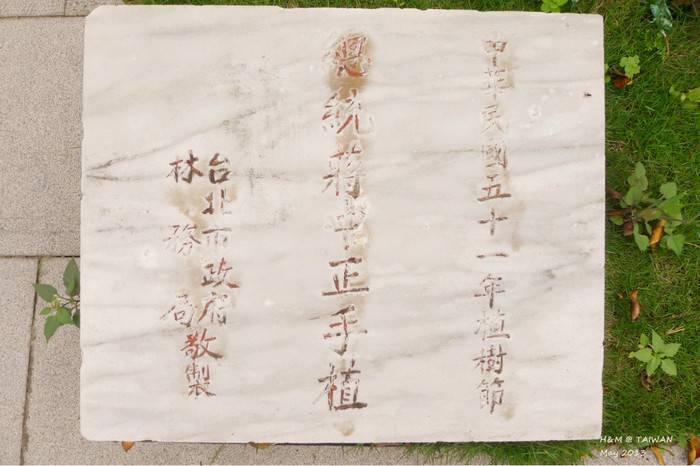 中華民國五十一年植樹節
總統蔣中正手植
台北市政府
林務局
敬製
H&M @ TAIWAN
May 2013